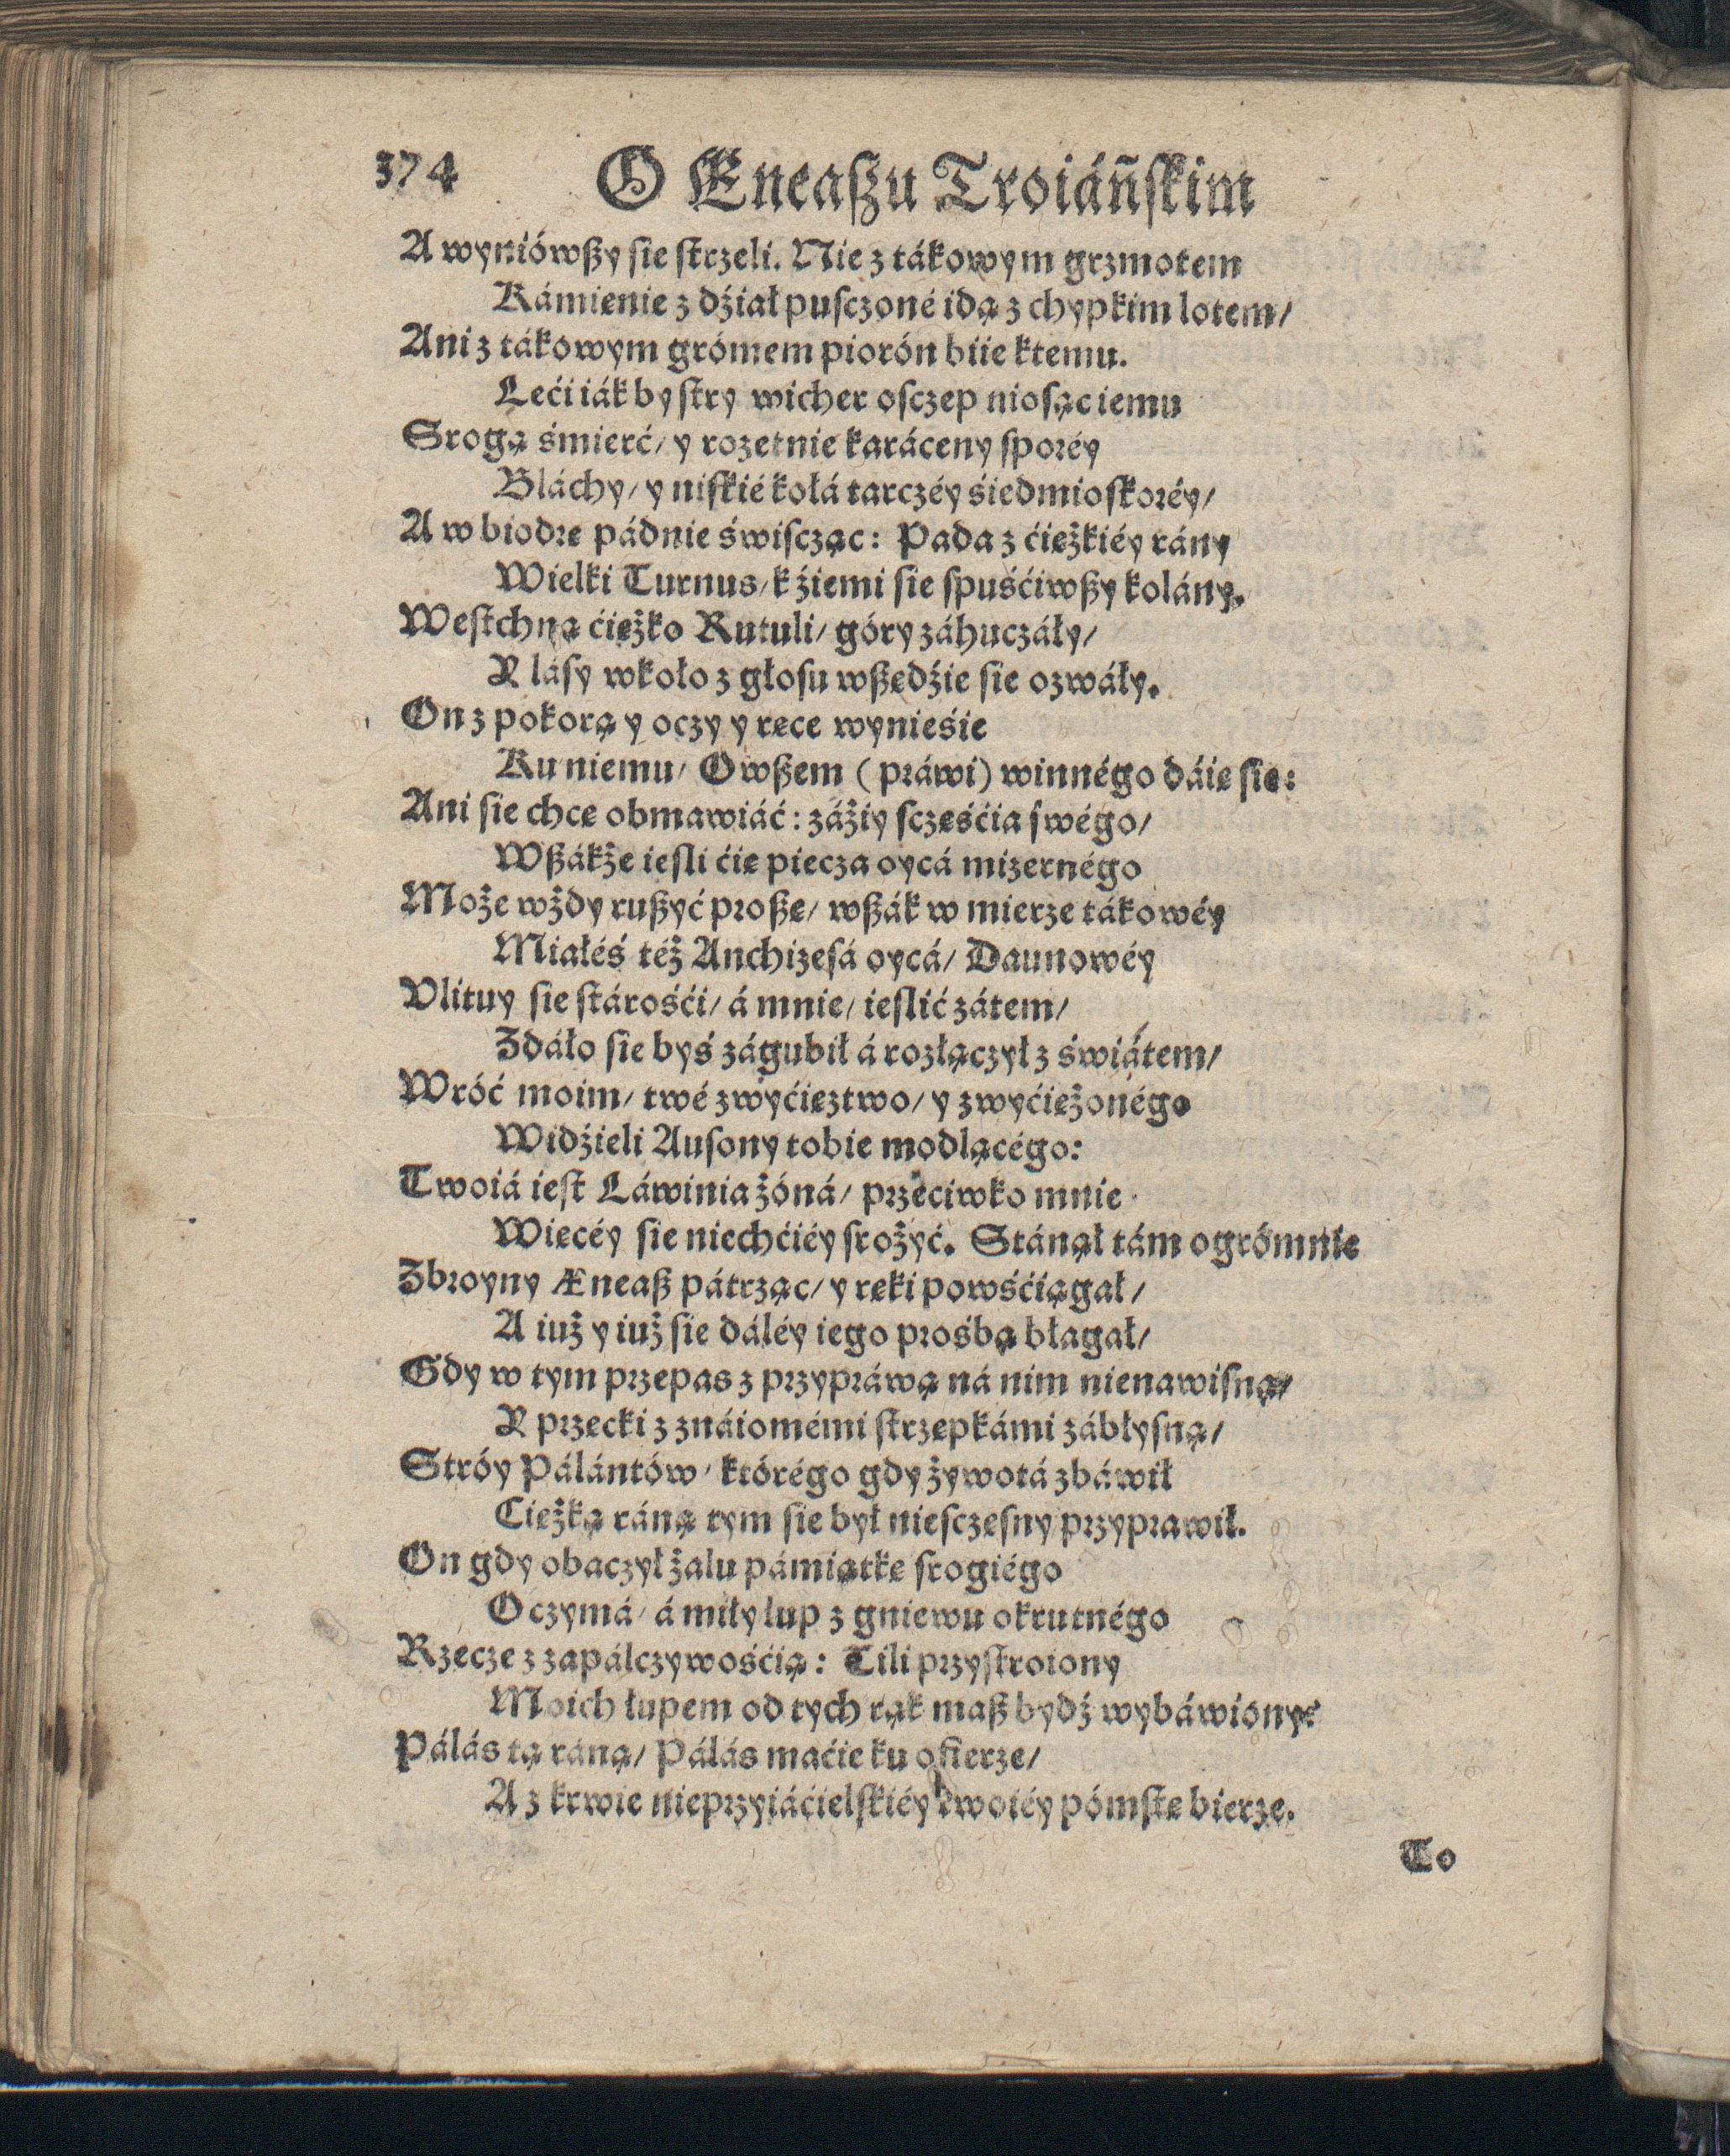 374 O Eneaſzu Troiáńſkim
A wynióẃſzy ſie ſtrzeli. Nie z tákowym grzmotem
Kámienie z dźiał puſczoné idą z chypkim lotem/
Ani z tákowym grómem piorón biie ktemu.
Lećí iák byſtry wicher oſczep nioſąc iemu
Srogą śmierć/ y rozetnie karáceny ſporéy
Bláchy/ y niſkié kołá tarczéy śiedmioſkoréy/
A w biodrę pádnie świſcząc: Pada z ćiężkiéy rány
Wielki Turnus/ k źiemi ſie ſpuśćiwſzy kolány.
Weſtchną ćiężko Rutuli/ góry záhuczáły/
Y láſy wkoło z głoſu wſzędźie ſie ozwáły.
On z pokorą y oczy y ręce wynieśie
Ku niemu/ Owſzem (práwi) winnégo dáię ſie:
Ani ſie chcę obmawiáć: záżiy ſczęśćia ſwégo/
Wſzákże ieſli ćię piecza oycá mizernégo
Może wżdy ruſzyć proſzę/ wſzák w mierze tákowéy
Miałéś też Anchizeſá oycá/ Daunowéy
Vlituy ſie ſtárośći/ á mnie/ ieſlić zátem/
Zdáło ſie byś zágubił á rozłączył z świátem/
Wróć moim/ twé zwyćięztwo/ y zwyćiężonégo
Widźieli Auſony tobie modlącégo:
Twoiá ieſt Láwinia żóná/ przeciwko mnie
Więcéy ſie niechćiéy ſrożyć. Stánął tám ogrómnie
Zbroyny Æneaſz pátrząc/ y ręki powśćiągał/
A iuż y iuż ſie dáléy iego prośbą błagał/
Gdy w tym przepas z przypráwą ná nim nienawiſną/
Y przecki z znáiomémi ſtrzępkámi zábłyſną/
Stróy Pálántów/ którégo gdy żywotá zbáwił
Cięſżką ráną tym ſie był nieſczęſny przyprawił.
On gdy obaczył żalu pámiątkę ſrogiégo
Oczymá/ á miły lup z gniewu okrutnégo
Rzecze z zapálczywośćią: Tili przyſtroiony
Moich łupem od tych rąk maſz bydź wybáwiony?
Pálás tą ráną/ Pálás maćie ku ofierze/
A z krwie nieprzyiáćielſkiéy twoiéy pómſtę bierze.
To